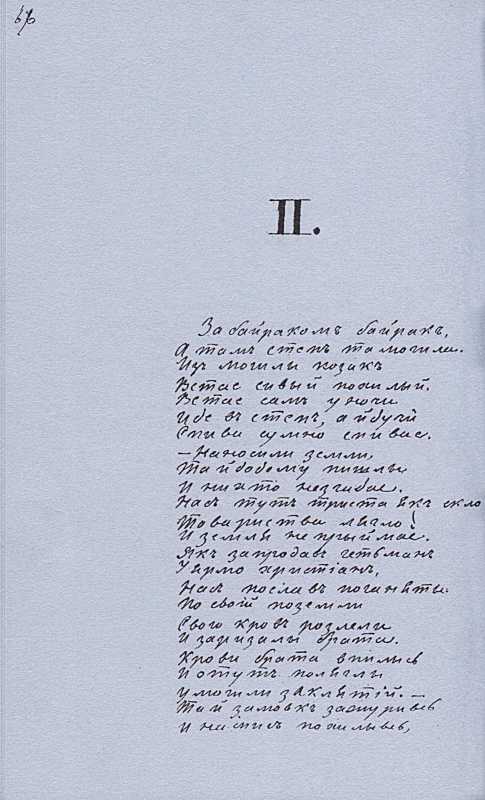 II.
За байракомъ байракъ,
А тамъ степъ та могила.
Изъ могилы козакъ
Встае сивый похилый.
Встае самъ уночи
Иде въ степъ, а йдучи
Спива сумно спивае.
— Наносили земли
Та й додому пишлы
И нихто незгадае.
Насъ тутъ триста якъ скло
Товариства лягло!
И земля не прыймае.
Якъ запродавъ гетьманъ
У ярмо христіанъ,
Насъ пославъ поганяты.
По своій по земли
Свою кровъ розлили
И заризалы брата.
Крови брата впились
И отутъ поляглы
У могили заклятій. —
Та й замовкъ зажуривсь
И на списъ похилывсь,